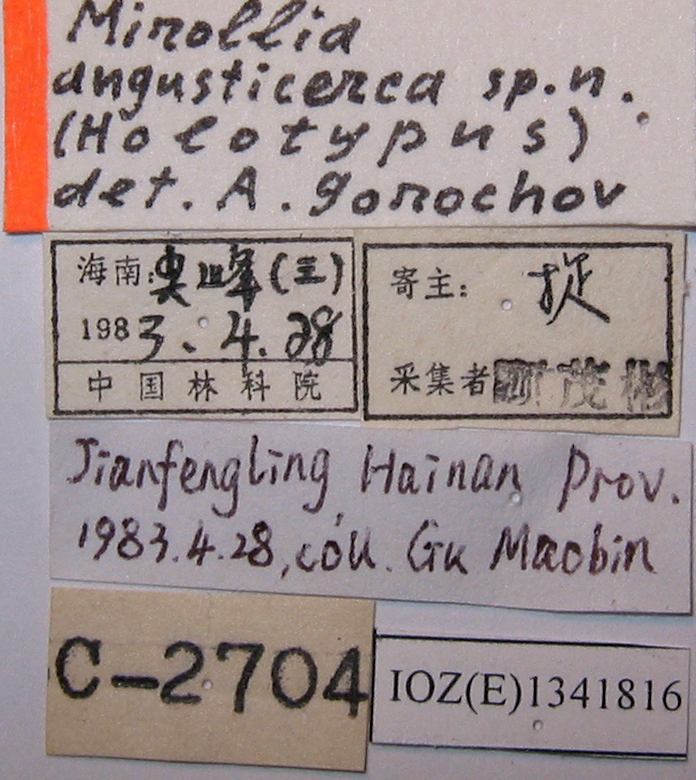 Mirollia
angusticerca sp.n.
(Holotypus)
det. A. Gorochov
海南: 尖峰(三)
1983.4.28
中国林科院
寄主: 捉
采集者 顾茂彬
Jianfengling, Hainan Prov.
1983.4.28, coll. Gu Maobin
C-2704
IOZ(E)1341816